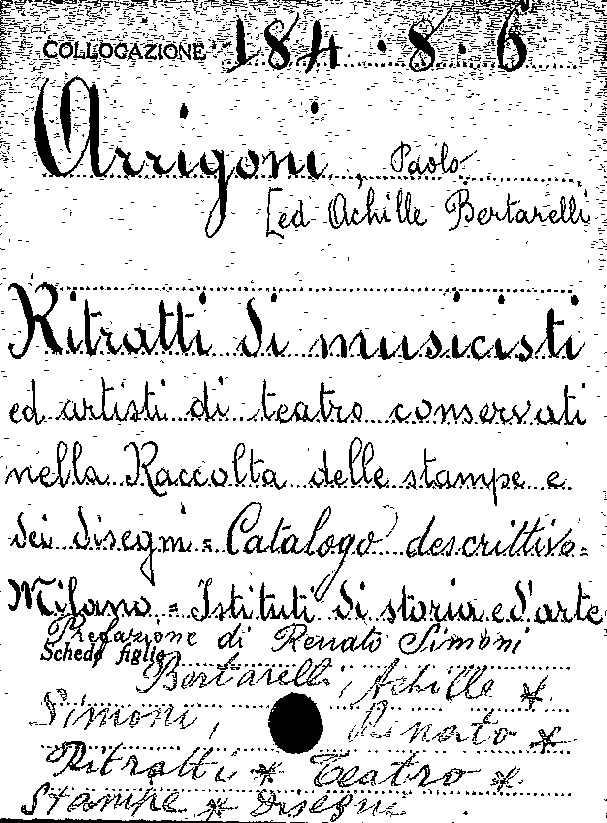 COLLOCAZIONE 184.8.6
Arrigoni, Paolo
[ed Achille Bertarelli
Ritratti di musicisti
ed artisti di teatro conservati
nella Raccolta delle stampe e
dei disegni = Catalogo descrittivo =
Milano = Istituti di storia e d'arte
Prefazione di Renato Simoni
Schede figlie
Bertarelli, Achille *
Simoni, Renato *
Ritratti * Teatro *
Stampe * Disegni